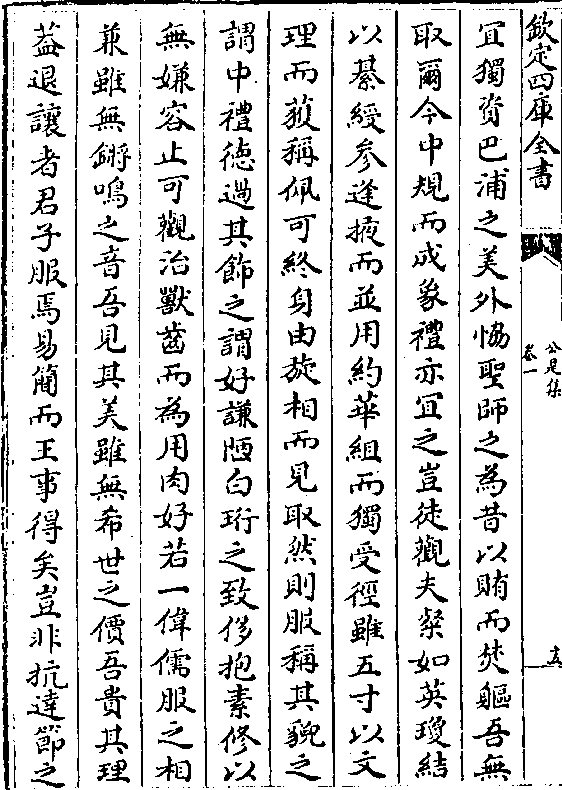 欽定四庫全書
公是集
卷一
十五
宜獨資巴浦之美外恊聖師之為昔以賄而焚軀吾無
取爾今中規而成象禮亦宜之豈徒觀夫粲如英瓊結
以綦綬參逢掖而並用約華組而獨受徑雖五寸以文
理而莪稱佩可終身由旋相而見取然則服稱其貌之
謂中禮德過其飾之謂好謙陋白珩之致侈抱素修以
無嫌容止可觀治獸齒而為用肉好若一偉儒服之相
兼雖無鏘鳴之音吾見其美雖無希世之價吾貴其理
葢退讓者君子服焉易簡而王事得矣豈非抗達節之